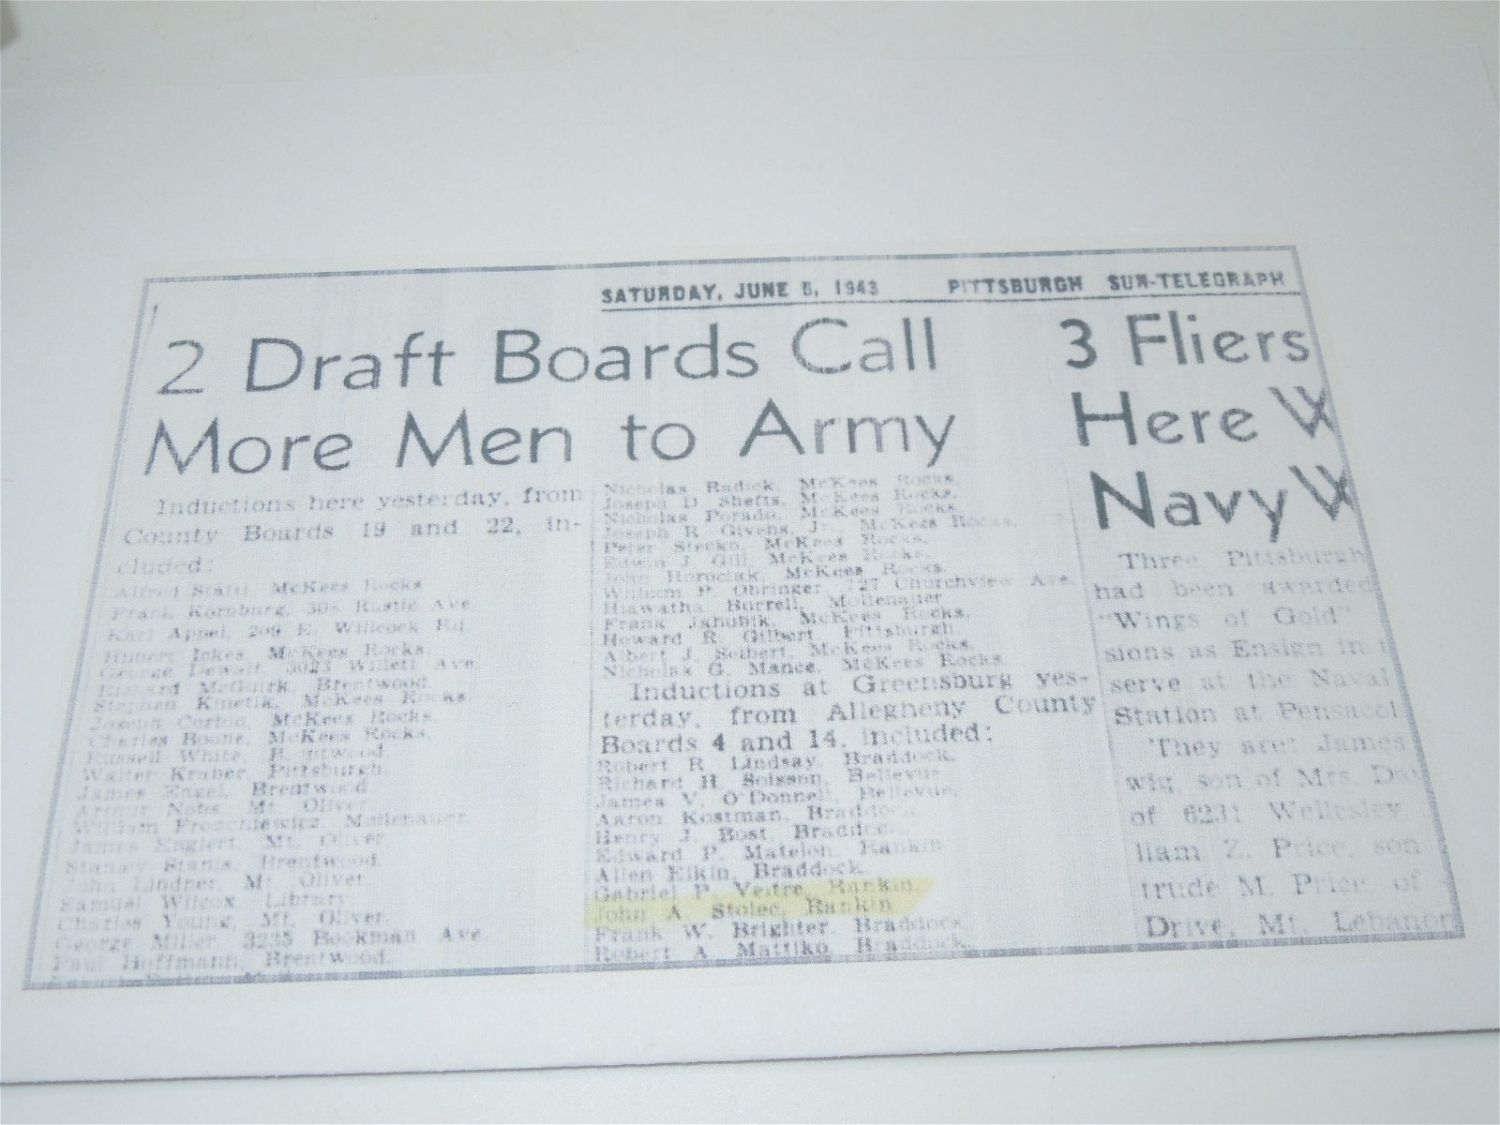 SATURDAY, JUNE 5, 1943 PITTSBURGH SUN-TELEGRAPH
2 Draft Boards Call
More Men to Army
Inductions here yesterday, from
County Boards 19 and 22, in-
cluded:
McKees Rocks
Frank Kornburg, 308 Rustic Ave
Karl Appel, 209 E. Willock Rd.
Hubert Jokes, McKees Rocks.
George Dewalt, 3023 Willett Ave
Richard McGuirk, Brentwood.
Stephen Kinetik, McKees Rocks
Joseph McKees Rocks
Charles Boone, McKees Rocks.
Russell White, Brentwood.
Walter Kraber, Pittsburgh.
James Engel, Brentwood
Arthur Nobs, Mt. Oliver
William Mollenauer
James Englert, Mt. Oliver
Stanley Brentwood.
John Lindner, Mt. Oliver
Samuel Wilcox, Library.
Charles Young, Mt. Oliver.
George Miller, 3235 Bookman Ave.
Paul Hoffmann, Brentwood.
Nicholas Radick, McKees Rocks.
Joseph D. Shefts, McKees Rocks.
Nicholas Porado, McKees Rocks.
Joseph R. Givens, Jr., McKees Rocks.
Peter Stecko, McKees Rocks.
Edwin J. Gill, McKees Rocks.
John McKees Rocks.
William P. Obringer, 727 Churchview Ave.
Hiawatha Burrell, Mollenauer.
Frank Janubik, McKees Rocks.
Howard R. Gilbert, Pittsburgh
Albert J. Seibert, McKees Rocks.
Nicholas G. Mance, McKees Rocks.
Inductions at Greensburg yes-
terday, from Allegheny County
Boards 4 and 14, included:
Robert R. Lindsay, Braddock.
Richard H. Soisson, Bellevue
James V. O'Donnell, Bellevue.
Aaron Kostman, Braddock
Henry J. Bost, Braddock
Edward P. Matelon, Rankin
Allen Elkin, Braddock.
Gabriel P. Veitre, Rankin.
John A. Stolec, Rankin
Frank W. Brighter, Braddock
Robert A. Mattiko, Braddock.
3 Fliers
Here W
Navy W
Three Pittsburgh
had been awarded
"Wings of Gold"
sions as Ensign in
serve at the Naval
Station at Pensacol
They are: James
wig, son of Mrs. Da
of 6231 Wellesley
liam Z. Price, son
trude M. Price, of
Drive, Mt. Lebanon